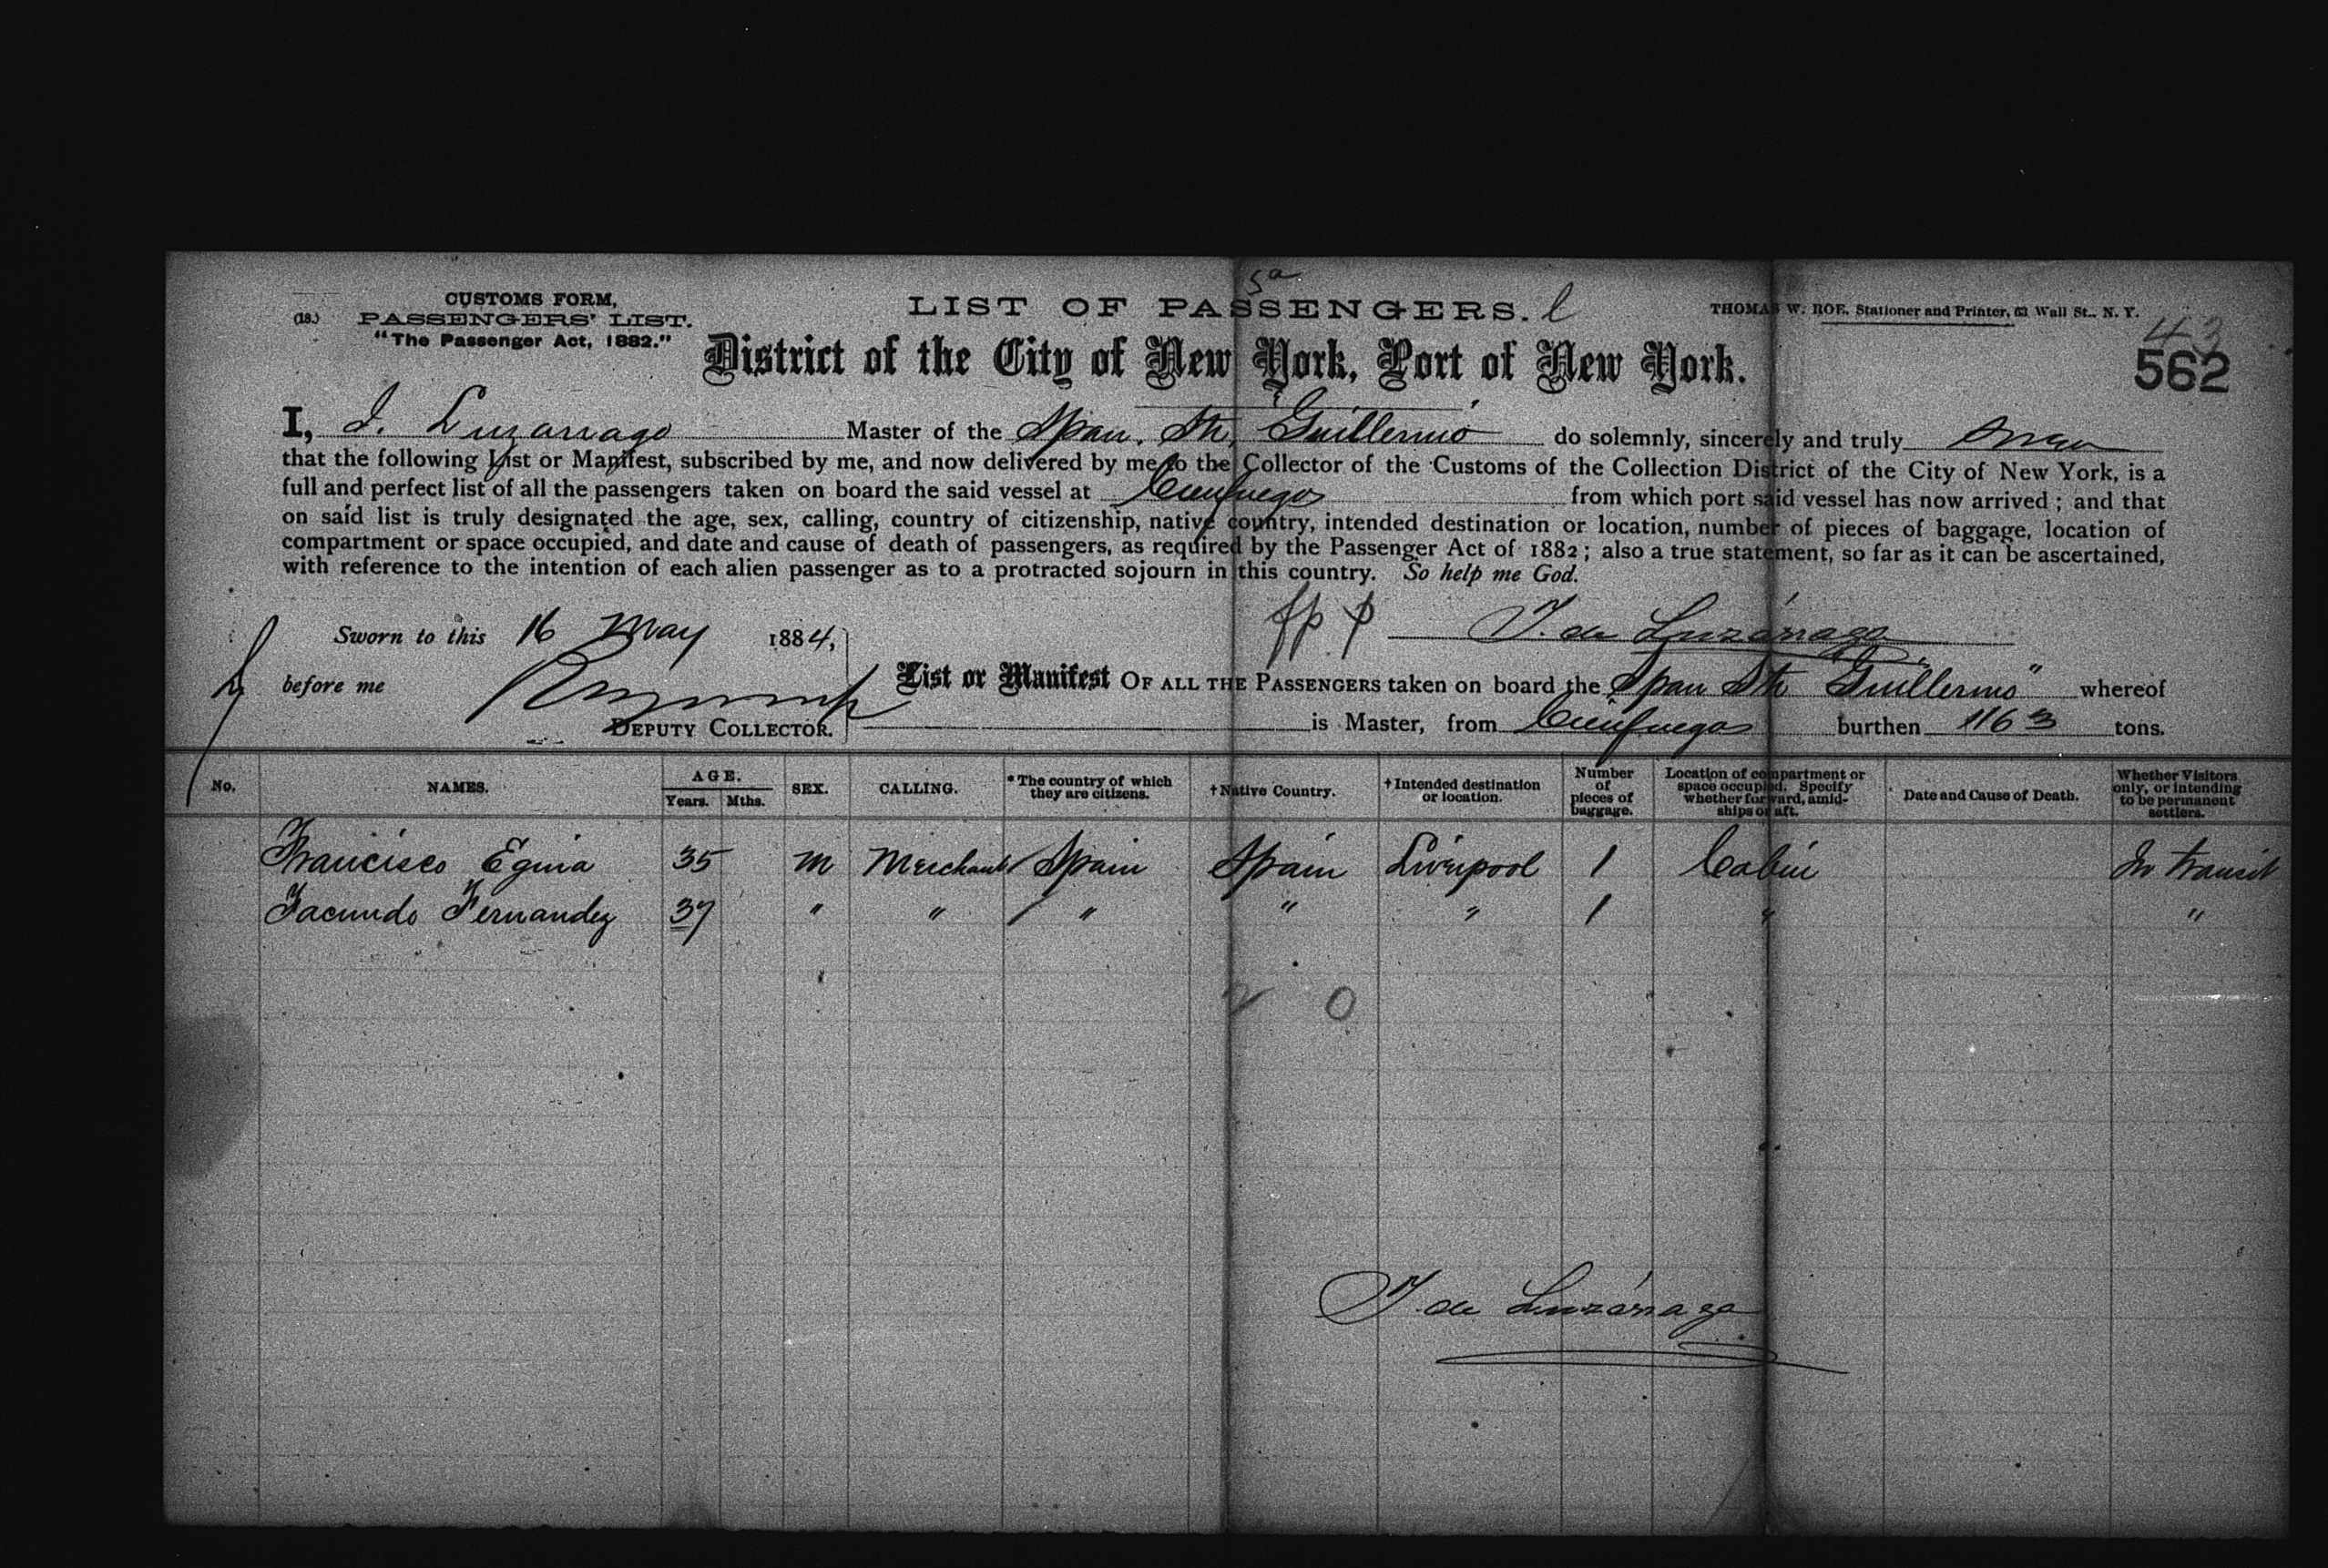 5a
CUSTOMS FORM,
(18.) PASSENGERS' LIST.
"The Passenger Act, 1882."
LIST OF PASSENGERS. l
THOMAS W. ROE, Stationer and Printer, 62 Wall St., N. Y.
43
562
District of the City of New York, Port of New York.
I, J. Luzarraga Master of the Span. Str. Guillermo do solemnly, sincerely and truly swear
that the following List or Manifest, subscribed by me, and now delivered by me to the Collector of the Customs of the Collection District of the City of New York, is a
full and perfect list of all the passengers taken on board the said vessel at Cienfuegos from which port said vessel has now arrived; and that
on said list is truly designated the age, sex, calling, country of citizenship, native country, intended destination or location, number of pieces of baggage, location of
compartment or space occupied, and date and cause of death of passengers, as required by the Passenger Act of 1882; also a true statement, so far as it can be ascertained,
with reference to the intention of each alien passenger as to a protracted sojourn in this country. So help me God.
Sworn to this 16 May 1884, J. de Luzárraga
before me
DEPUTY COLLECTOR.
List or Manifest OF ALL THE PASSENGERS taken on board the Span Str "Guillermo" whereof
is Master, from Cienfuegos burthen 1163 tons.
No. NAMES. AGE. Years. Mths. SEX. CALLING. *The country of which they are citizens. †Native Country. †Intended destination or location. Number of pieces of baggage. Location of compartment or space occupied. Specify whether forward, amidships or aft. Date and Cause of Death. Whether Visitors only, or intending to be permanent settlers.
Francisco Eguia 35 M Merchant Spain Spain Liverpool 1 Cabin In transit
Facundo Fernandez 37 " " " " " 1 " "
2 0
J. de Luzárraga